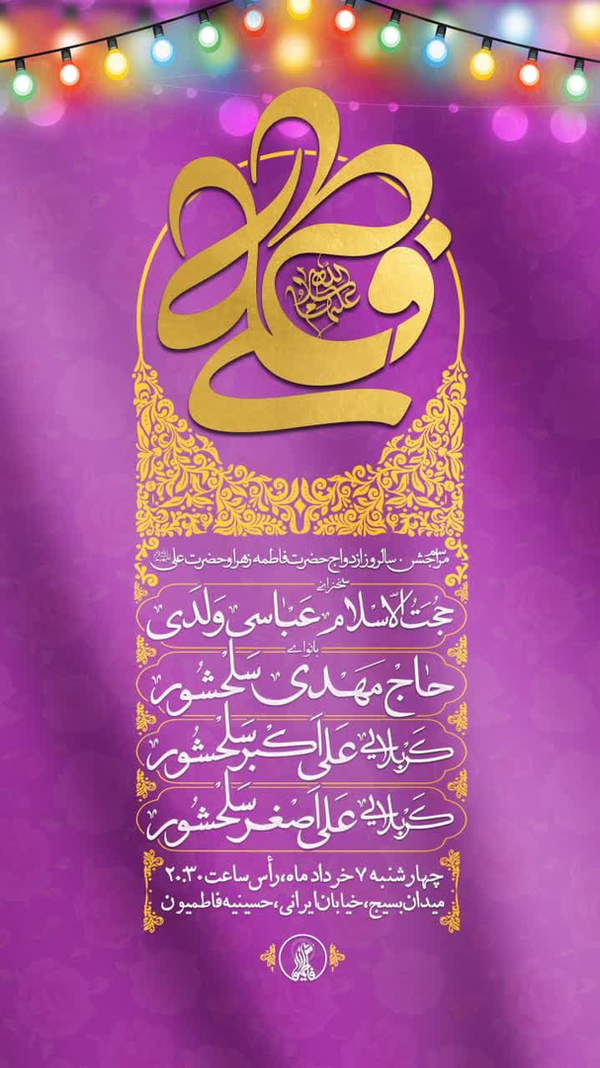 فاطمه علی
مراسم جشن سالروز ازدواج حضرت فاطمه زهرا و حضرت علی
سخنرانی
حجت‌الاسلام عباسی ولدی
بانوای
حاج مهدی سلحشور
کربلایی علی اکبر سلحشور
کربلایی علی اصغر سلحشور
چهارشنبه ۷ خرداد ماه، رأس ساعت ۲۰:۳۰
میدان بسیج، خیابان ایرانی، حسینیه فاطمیون